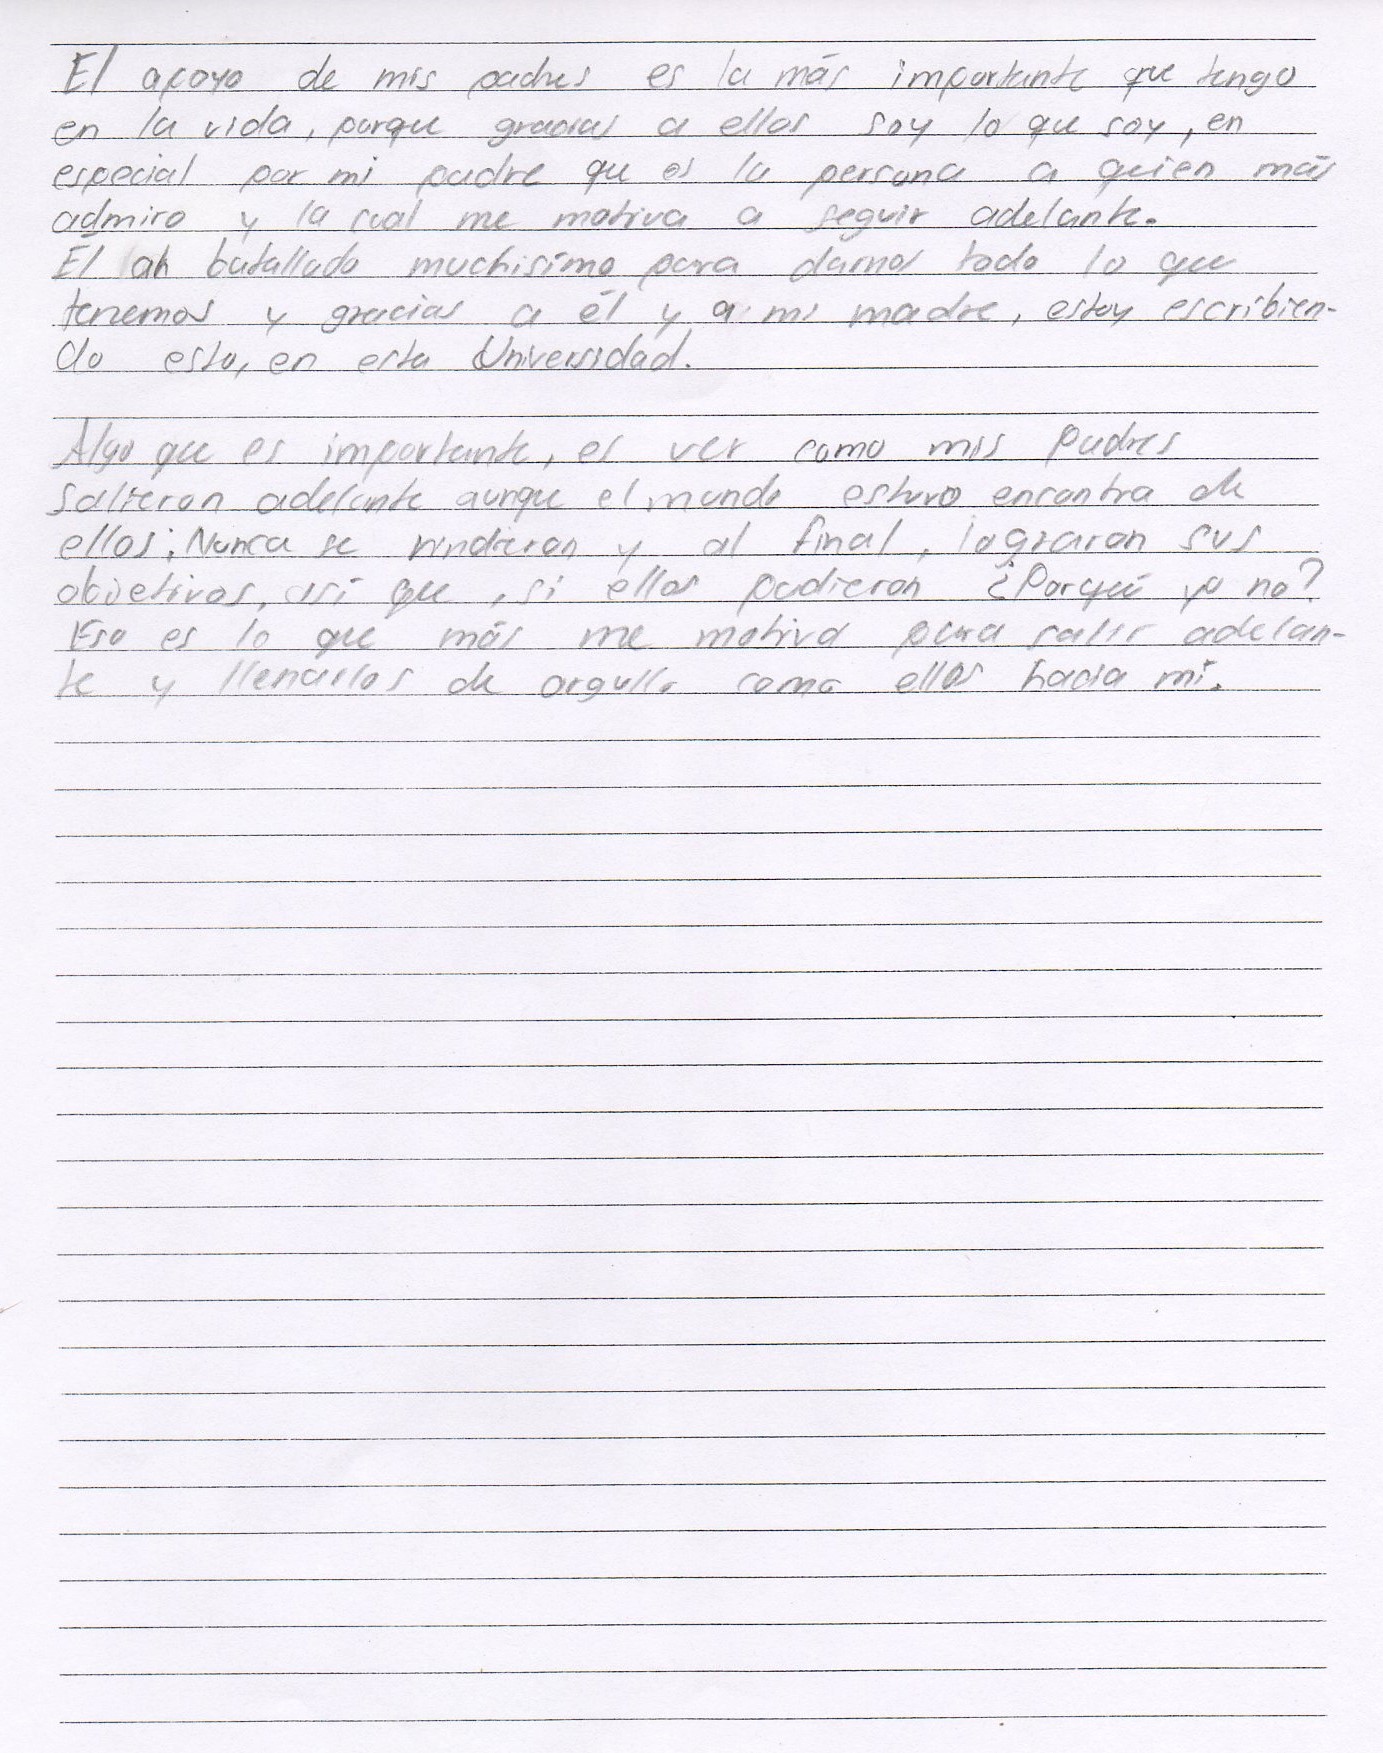 El apoyo de mis padres es la más importante que tengo
en la vida, porque gracias a ellos soy lo que soy, en
especial por mi padre que es la persona a quien más
admiro y la cual me motiva a seguir adelante.
Él ah batallado muchisimo para darnos todo lo que
tenemos y gracias a él y a mi madre, estoy escribien-
do esto, en esta Universidad.
Algo que es importante, es ver como mis padres
salieron adelante aunque el mundo estuvo encontra de
ellos; Nunca se rindieron y al final, lograron sus
objetivos, así que, si ellos pudieron ¿Porqué yo no?
Eso es lo que más me motiva para salir adelan-
te y llenarlos de orgullo como ellos hacia mi.